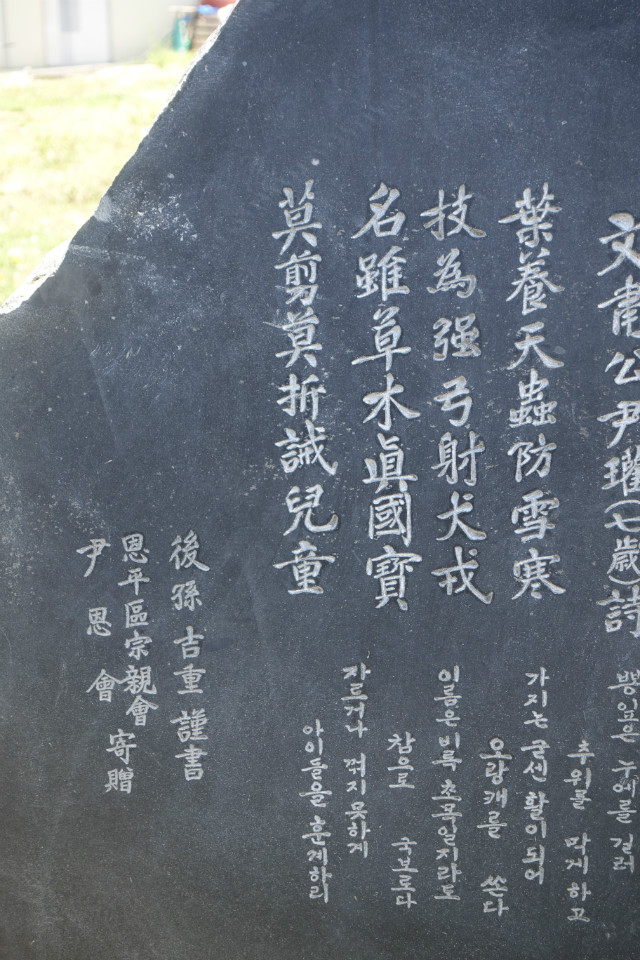 文肅公尹瓘(七歲)詩
葉養天蟲防雪寒
技為强弓射犬戎
名雖草木眞國寶
莫剪莫折誡兒童
뽕잎은 누에를 길러
추위를 막게하고
가지는 굳센 활이되어
오랑캐를 쏜다
이름은비록 초목일지라도
참으로 국보로다
자르거나 꺾지못하게
아이들을 훈계하리
後孫 吉重 謹書
恩平區宗親會 寄贈
尹恩會